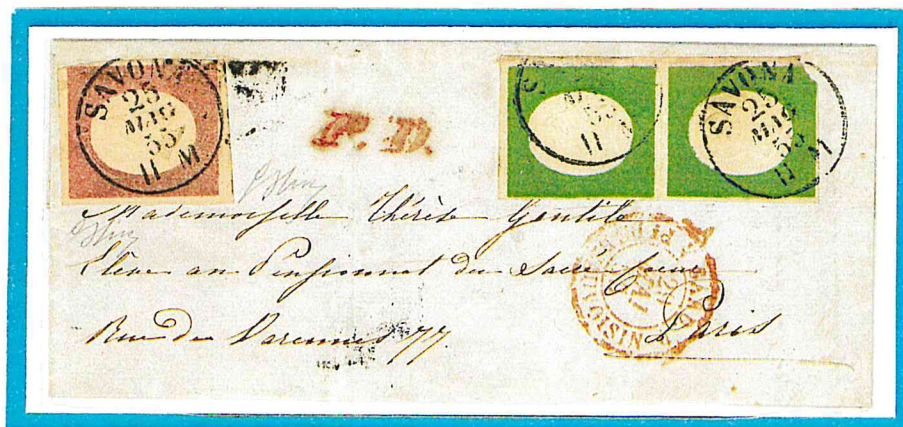 SAVONA
25
MAG
55
11 M
P.D.
SAVONA
25
MAG
55
11 M
Mademoiselle Thérèse Gentile
Elève au Pensionnat du Sacré Coeur
Rue de Varennes 77
Paris